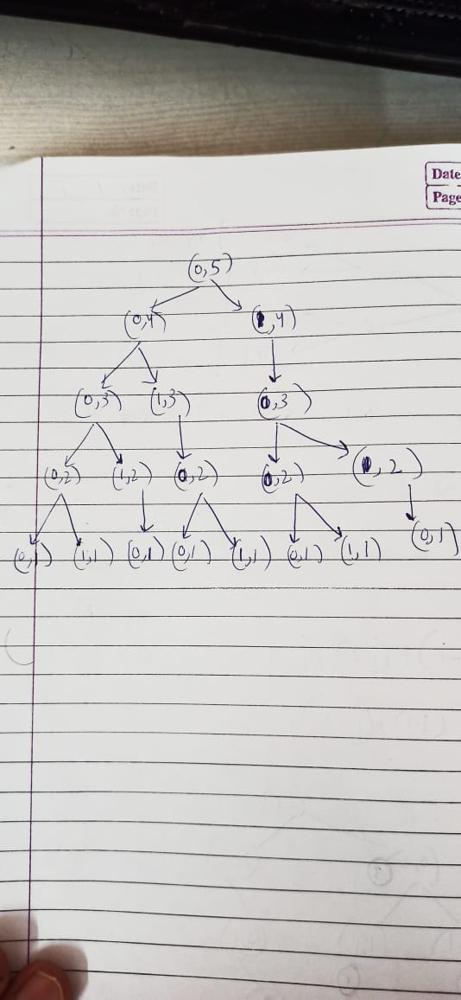 Date
Page
(0,5)
(0,4) (1,4)
(0,3) (1,3) (0,3)
(0,2) (1,2) (0,2) (0,2) (1,2)
(0,1) (1,1) (0,1) (0,1) (1,1) (0,1) (1,1) (0,1)